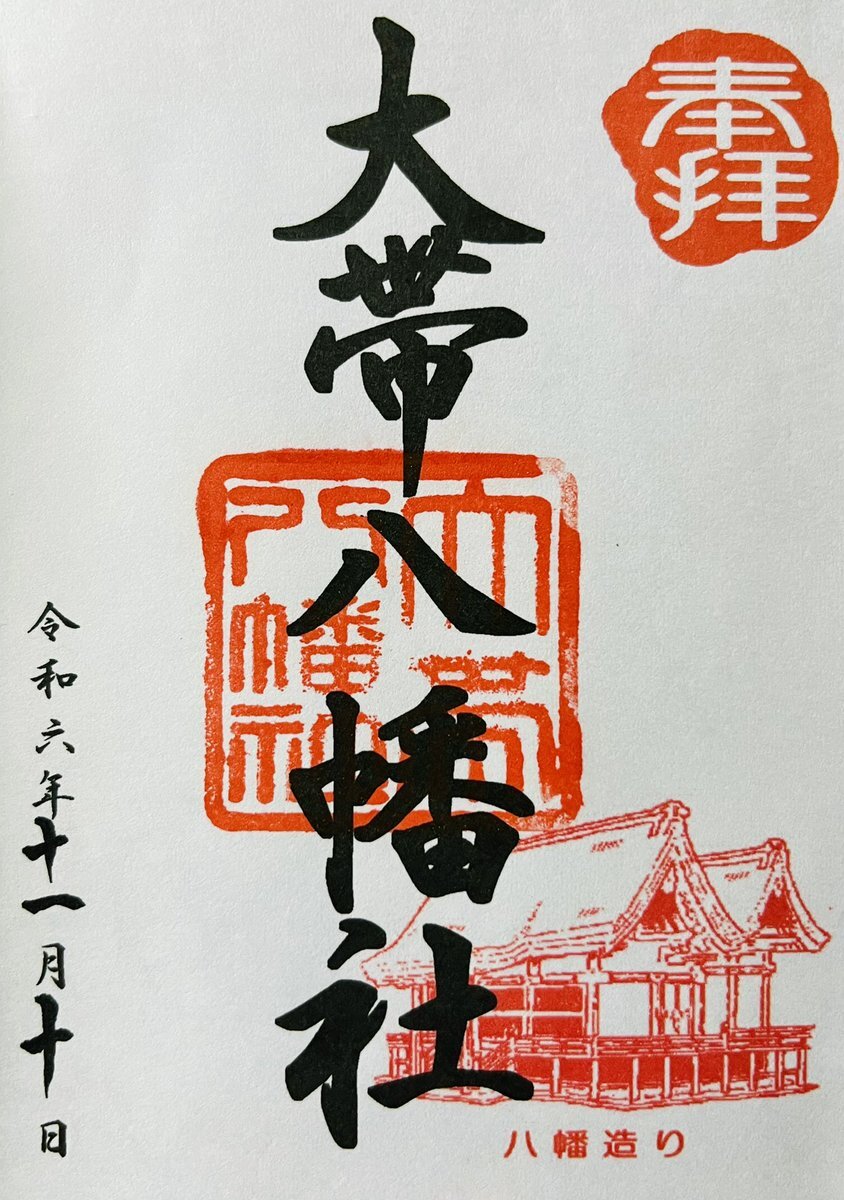 奉拝
大帯八幡社
大帯
八幡社
八幡造り
令和六年十一月十日